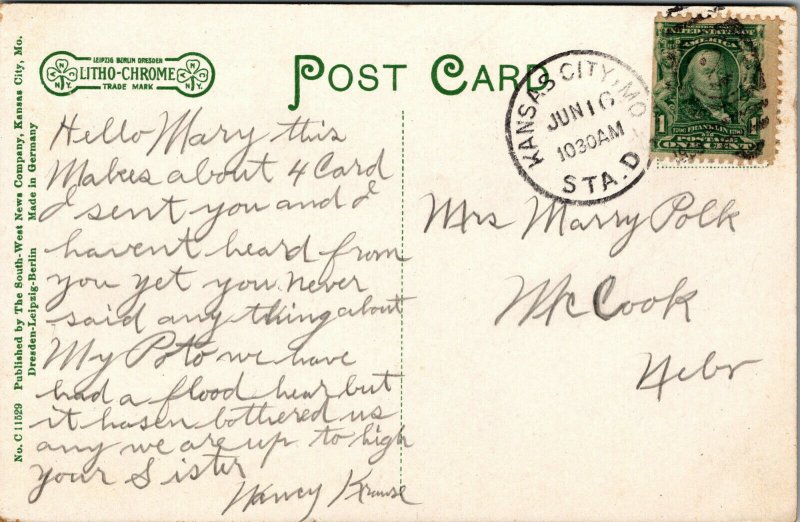 LEIPZIG BERLIN DRESDEN
LITHO-CHROME
TRADE MARK
N Y
N Y
POST CARD
KANSAS CITY, MO.
JUN 16
1030AM
STA. D
UNITED STATES OF
AMERICA
1 FRANKLIN 1
POSTAGE
ONE CENT
No. C 11529 Published by The South-West News Company, Kansas City, Mo.
Dresden-Leipzig-Berlin Made in Germany
Hello Mary this
Makes about 4 Card
I sent you and I
havent heard from
you yet you never
said any thing about
My Poto we have
had a flood hear but
it hasen bothered us
any we are up to high
your Sister
Nancy Krause
Mrs Marry Polk
Mc Cook
Nebr